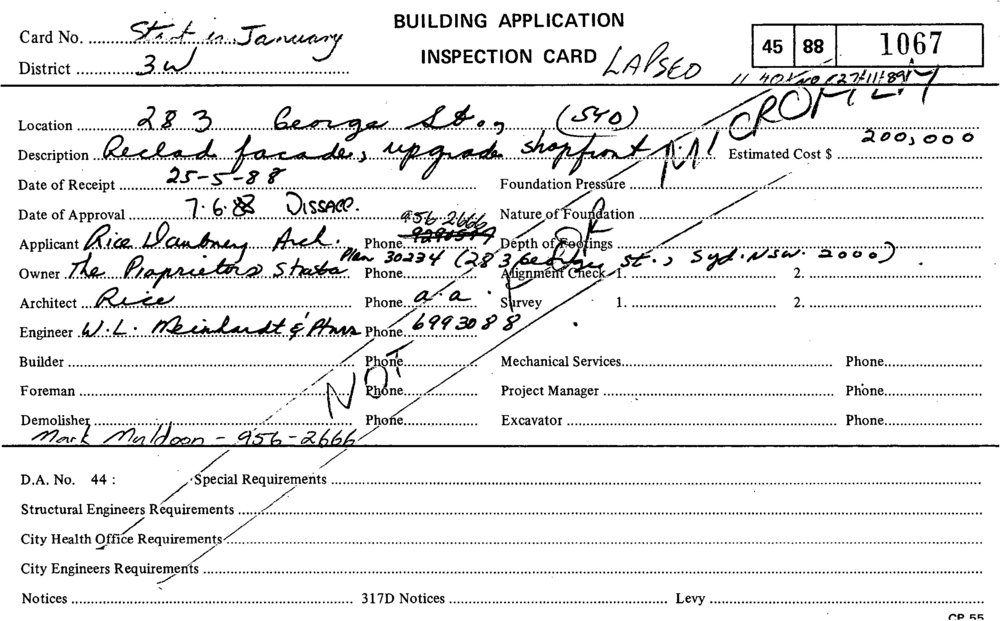 BUILDING APPLICATION
INSPECTION CARD LAPSED
Card No. Start in January
45 88 1067
District 3W
Location 283 George St. (SYD)
Description Reclad facade, upgrade shopfront Estimated Cost $ 200,000
Date of Receipt 25-5-88 Foundation Pressure
Date of Approval 7.6.88 DISSAPP. Nature of Foundation
956-2666
Applicant Rice Daubney Arch. Phone Depth of Footings
Owner The Proprietors Strata Plan 30234 (283 George St., Syd. NSW. 2000) Phone Alignment Check 1. 2.
Architect Rice Phone a.a. Survey 1. 2.
Engineer W.L. Meinhardt & Ptnrs Phone 6993088
Builder Phone Mechanical Services Phone
Foreman Phone Project Manager Phone
Demolisher Phone Excavator Phone
Mark Muldoon - 956-2666
NOT MICROFILM
D.A. No. 44 : Special Requirements
Structural Engineers Requirements
City Health Office Requirements
City Engineers Requirements
Notices 317D Notices Levy
CP 55